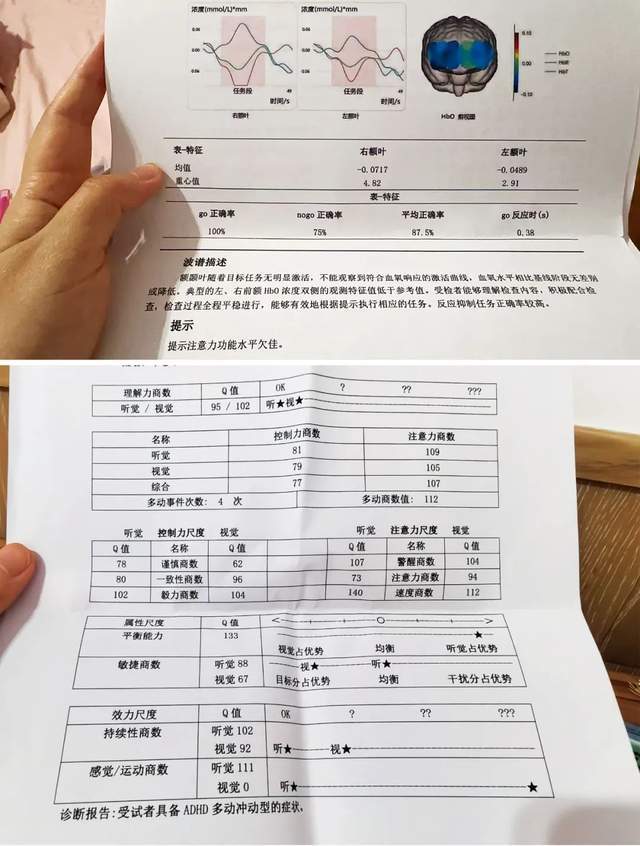 浓度(mmol/L)*mm 浓度(mmol/L)*mm
0.06 0.06 0.10
0.00 0.00 0.00 HbO
HbR
HbT
0.06 0.06 -0.10
任务段 49 任务段 49
时间/s 时间/s
右额叶 左额叶 HbO 前视图
表-特征 右额叶 左额叶
均值 -0.0717 -0.0489
重心值 4.82 2.91
表-特征
go 正确率 nogo 正确率 平均正确率 go 反应时(s)
100% 75% 87.5% 0.38
波谱描述
额颞叶随着目标任务无明显激活，不能观察到符合血氧响应的激活曲线，血氧水平相比基线阶段无差别
或降低。典型的左、右前额 HbO 浓度双侧的观测特征值低于参考值。受检者能够理解检查内容，积极配合检
查，检查过程全程平稳进行，能够有效地根据提示执行相应的任务。反应抑制任务正确率较高。
提示
提示注意力功能水平欠佳。
理解力商数 Q 值 OK ? ?? ???
听觉 / 视觉 95 / 102 听★视★
名称 控制力商数 注意力商数
听觉 81 109
视觉 79 105
综合 77 107
多动事件次数: 4 次 多动商数值: 112
听觉 控制力尺度 视觉 听觉 注意力尺度 视觉
Q 值 名称 Q 值 Q 值 名称 Q 值
78 谨慎商数 62 107 警醒商数 104
80 一致性商数 96 73 注意力商数 94
102 毅力商数 104 140 速度商数 112
属性尺度 Q 值
平衡能力 133 ★
视觉占优势 均衡 听觉占优势
敏捷商数 听觉 88 视★ 听★
视觉 67 目标分占优势 均衡 干扰分占优势
效力尺度 Q 值 OK ? ?? ???
持续性商数 听觉 102
视觉 92 听★ 视★
感觉/运动商数 听觉 111
视觉 0 听★ ★
诊断报告:受试者具备 ADHD 多动冲动型的症状,